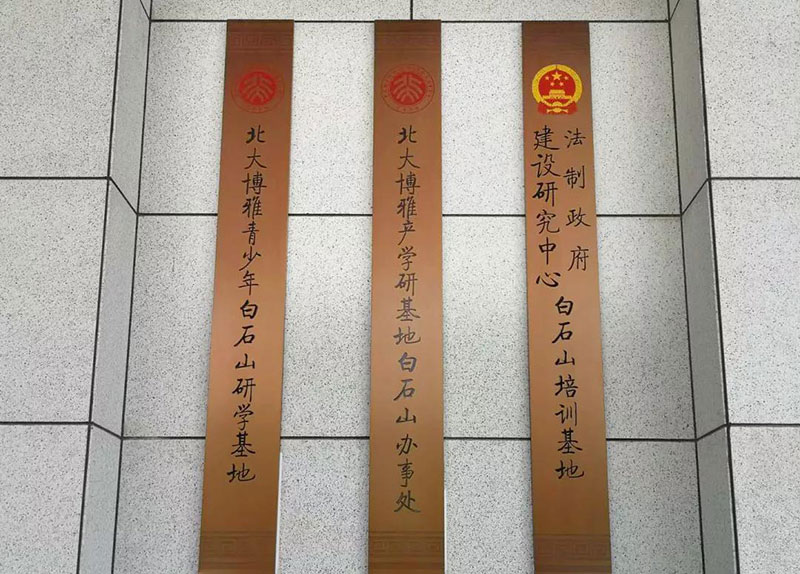 北大博雅青少年白石山研学基地
北大博雅产学研基地白石山办事处
法制政府
建设研究中心
白石山培训基地